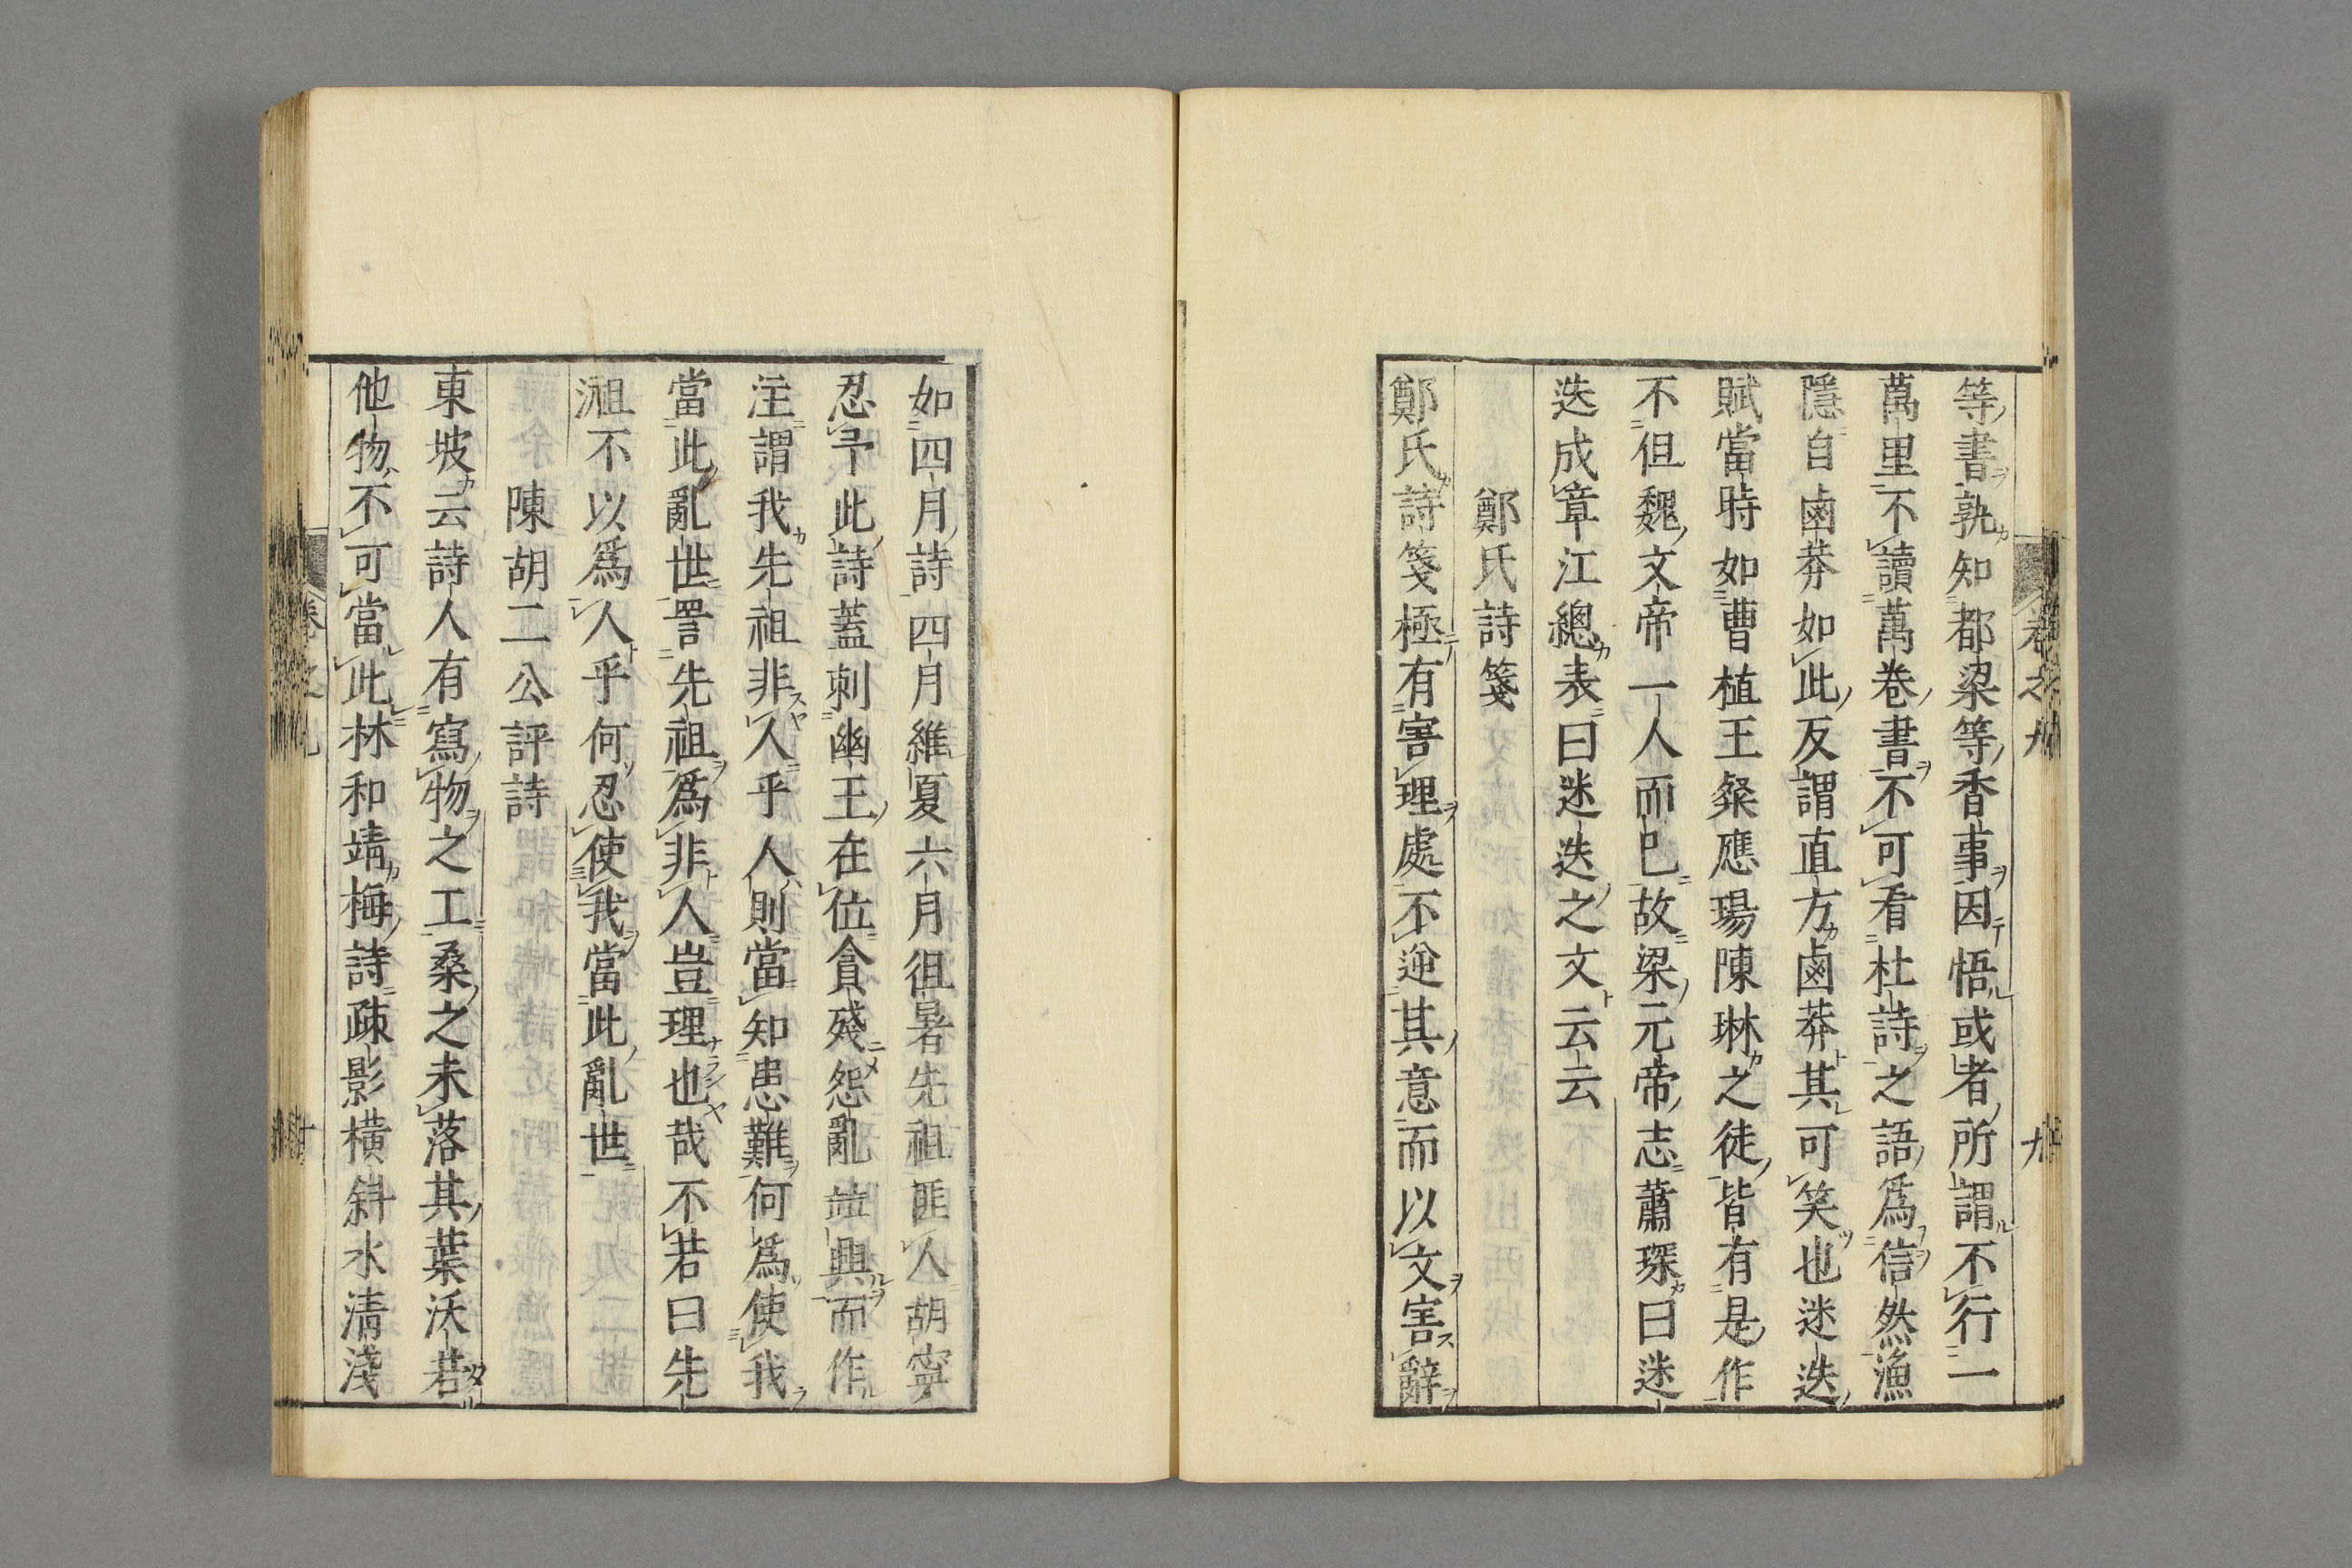 卷之九　九
等書孰知都梁等香事因悟或者所謂不行一
萬里不讀萬卷書不可看杜詩之語爲信然漁
隱自鹵莽如此反謂直方鹵莽其可笑也迷迭
賦當時如曹植王粲應瑒陳琳之徒皆有是作
不但魏文帝一人而已故梁元帝志蕭琛曰迷
迭成章江總表曰迷迭之文云云
鄭氏詩箋
鄭氏詩箋極有害理處不逆其意而以文害辭
如四月詩四月維夏六月徂暑先祖匪人胡寧
忍予此詩蓋刺幽王在位貪殘怨亂竝興而作
注謂我先祖非人乎人則當知患難何爲使我
當此亂世詈先祖爲非人豈理也哉不若曰先
祖不以爲人乎何忍使我當此亂世
陳胡二公評詩
東坡云詩人有寫物之工桑之未落其葉沃若
他物不可當此林和靖梅詩疎影橫斜水清淺